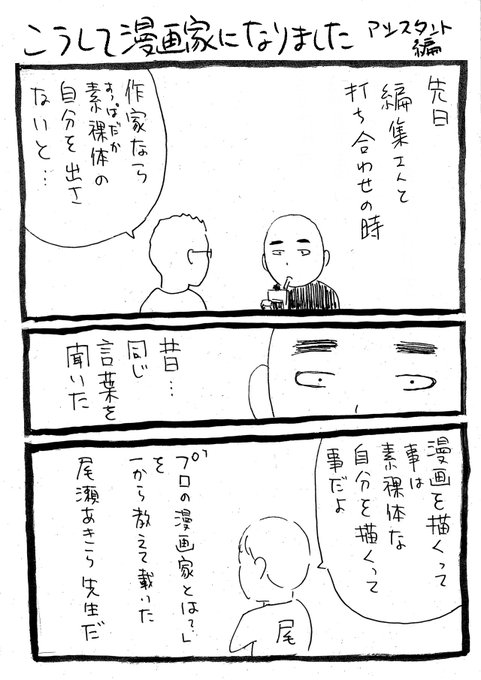 こうして漫画家になりました アシスタント
編
先日
編集さんと
打ち合わせの時
作家なら
素裸体の
すっぱだか
自分を出さ
ないと…
昔…
同じ
言葉を
聞いた
漫画を描くって
事は
素裸体な
自分を描くって
事だよ
"プロの漫画家とは?"
を
一から教えて戴いた
尾瀬あきら先生だ
尾